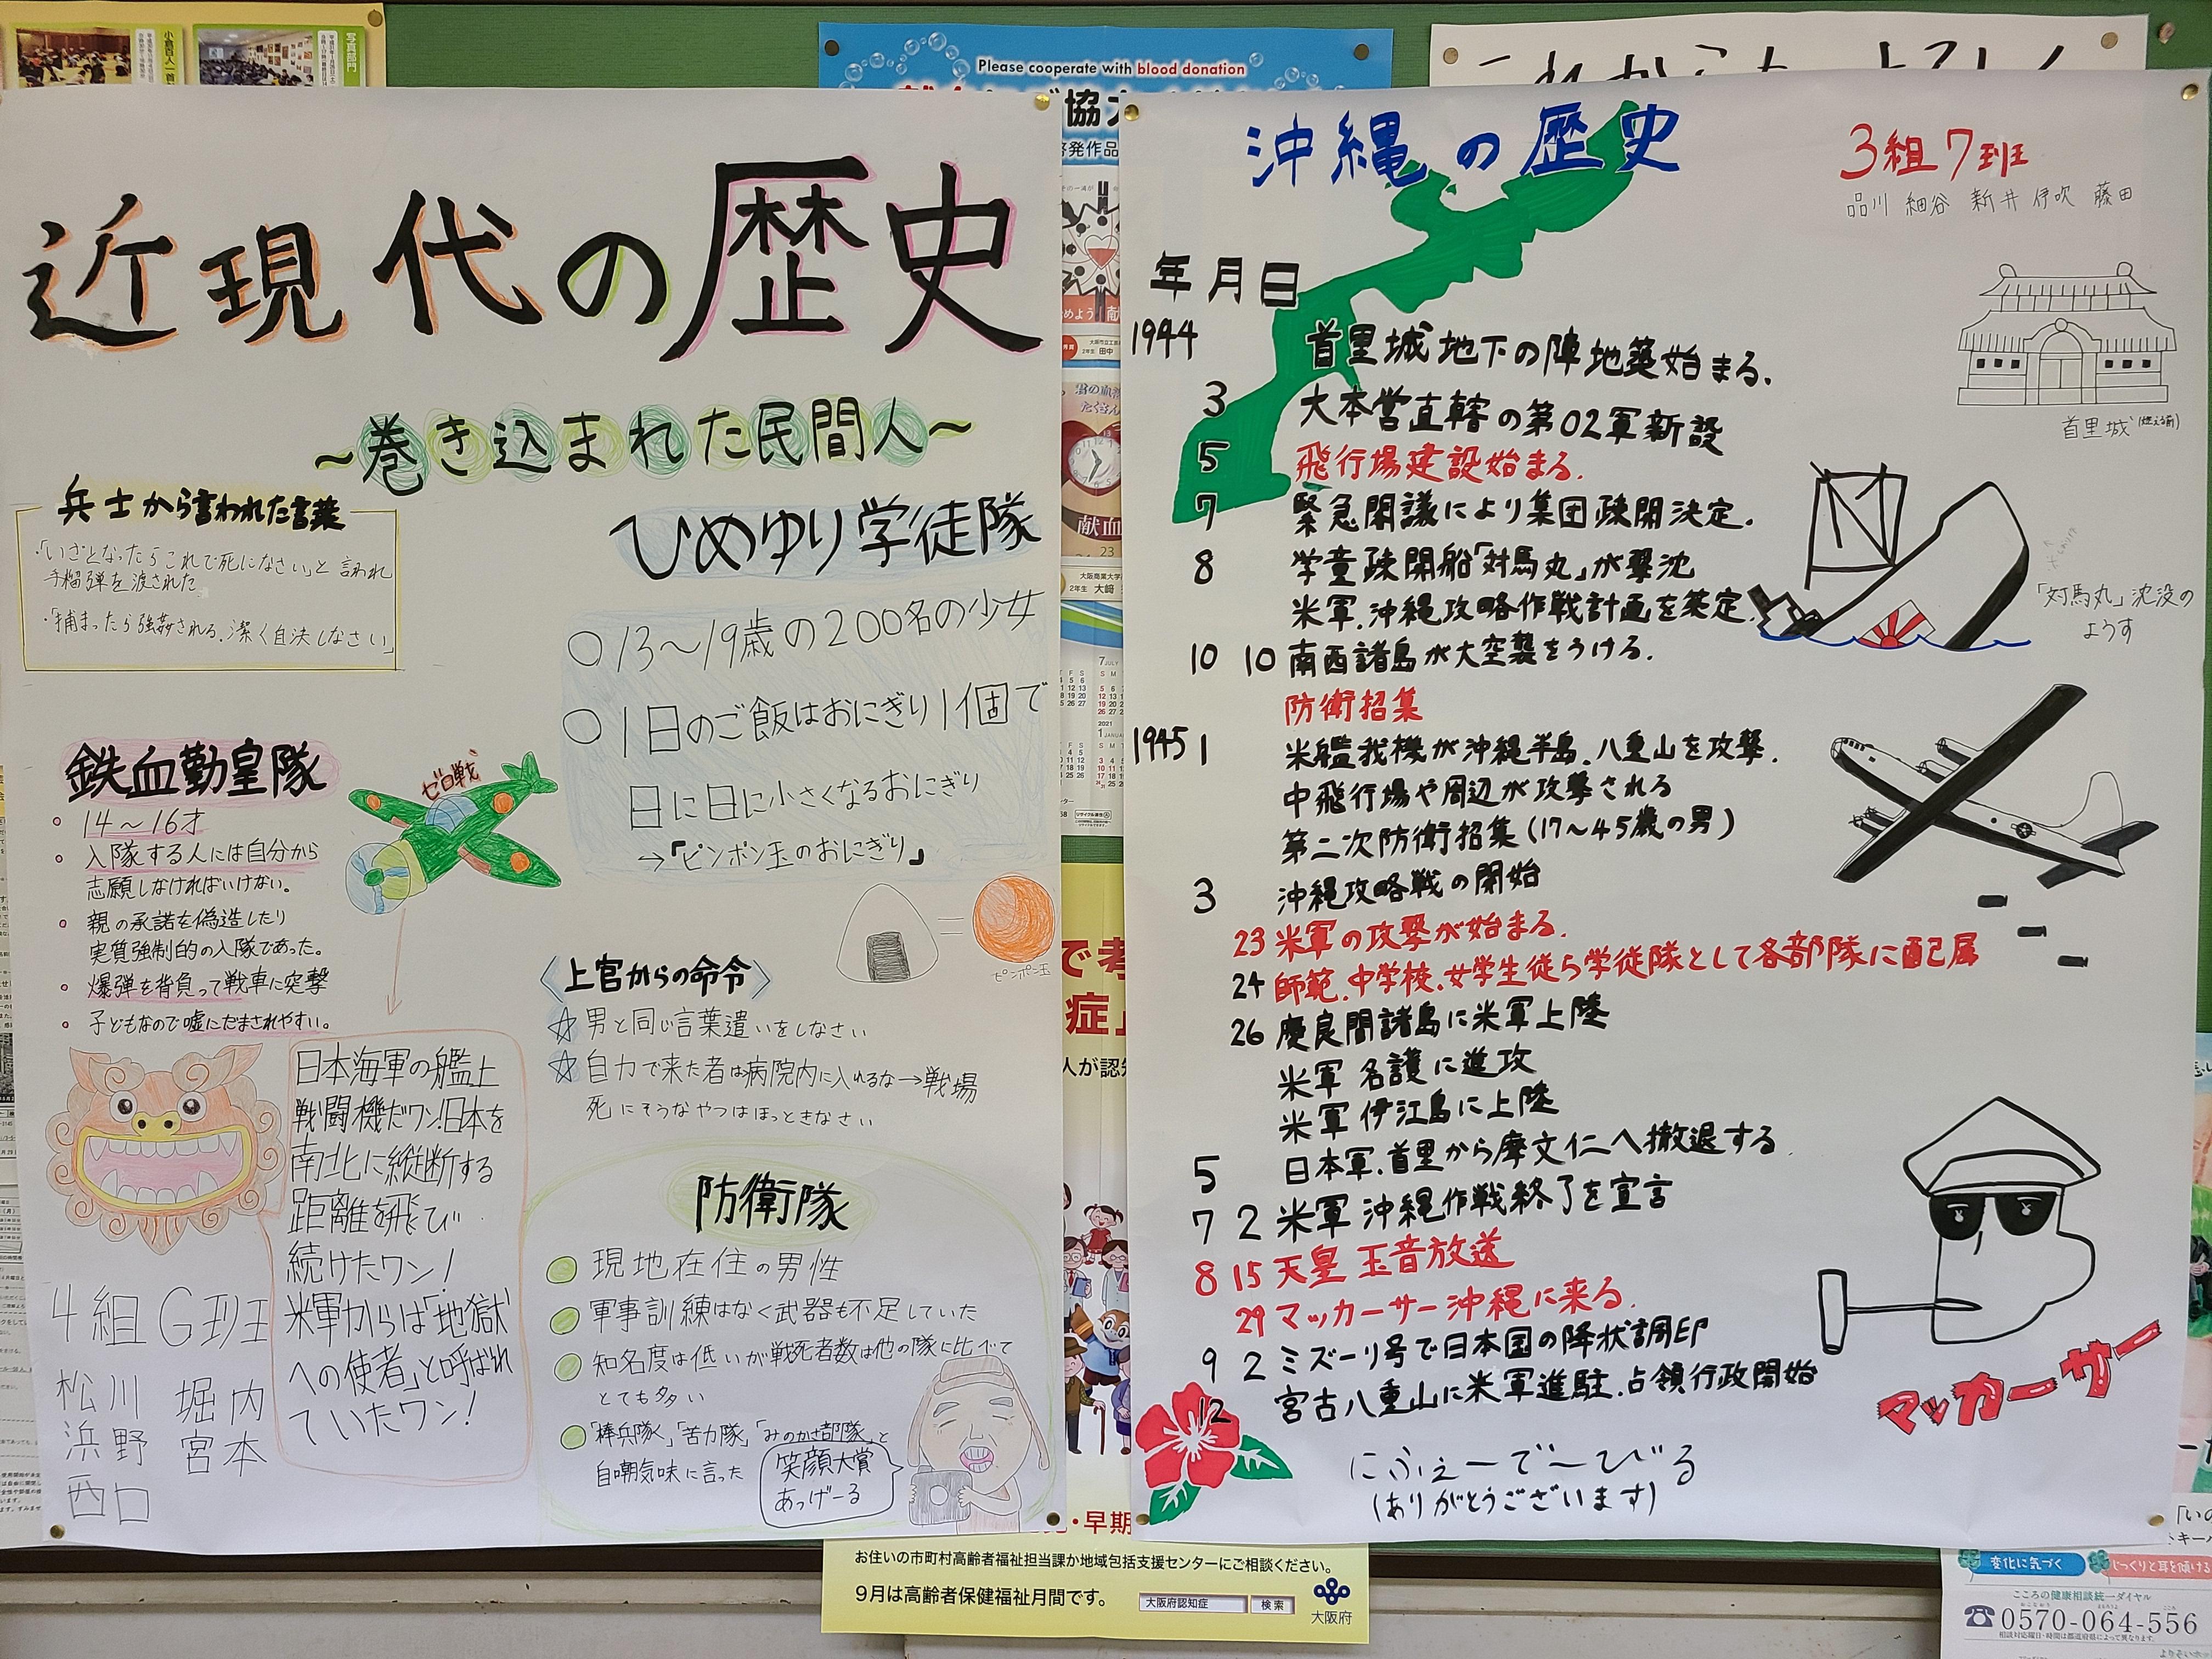 近現代の歴史
～巻き込まれた民間人～
兵士から言われた言葉
・「いざとなったらこれで死になさい」と言われ
手榴弾を渡された。
・「捕まったら強姦される。潔く自決しなさい」
ひめゆり学徒隊
○13～19歳の200名の少女
○1日のご飯はおにぎり1個で
日に日に小さくなるおにぎり
→「ピンポン玉のおにぎり」
ピンポン玉
鉄血勤皇隊
・14～16才
・入隊する人には自分から
志願しなければいけない。
・親の承諾を偽造したり
実質強制的の入隊であった。
・爆弾を背負って戦車に突撃
・子どもなので嘘にだまされやすい。
ゼロ戦
日本海軍の艦上
戦闘機だワン!日本を
南北に縦断する
距離を飛び
続けたワン!
米軍からは「地獄
への使者」と呼ばれ
ていたワン!
4組G班
松川 堀内
浜野 宮本
西口
〈上官からの命令〉
☆男と同じ言葉遣いをしなさい
☆自力で来た者は病院内に入れるな→戦場
死にそうなやつはほっときなさい
防衛隊
現地在住の男性
軍事訓練はなく武器も不足していた
知名度は低いが戦死者数は他の隊に比べて
とても多い
「棒兵隊」「苦力隊」「みのかさ部隊」と
自嘲気味に言った
笑顔大賞
あっげーる
沖縄の歴史
3組7班
品川 細谷 新井 伊吹 藤田
年月日
1944 首里城地下の陣地築始まる。
3 大本営直轄の第02軍新設
5 飛行場建設始まる。
7 緊急閣議により集団疎開決定。
8 学童疎開船「対馬丸」が撃沈
米軍、沖縄攻略作戦計画を策定
10 10 南西諸島が大空襲をうける。
防衛招集
1945 1 米艦我機が沖縄半島、八重山を攻撃。
中飛行場や周辺が攻撃される
第二次防衛招集(17～45歳の男)
3 沖縄攻略戦の開始
23 米軍の攻撃が始まる。
24 師範、中学校、女学生徒ら学徒隊として各部隊に配属
26 慶良間諸島に米軍上陸
米軍 名護に進攻
米軍 伊江島に上陸
5 日本軍、首里から摩文仁へ撤退する
7 2 米軍 沖縄作戦終了を宣言
8 15 天皇 玉音放送
29 マッカーサー沖縄に来る。
9 2 ミズーリ号で日本国の降状調印
12 宮古八重山に米軍進駐、占領行政開始
首里城(燃える前)
「対馬丸」沈没の
ようす
マッカーサー
にふぇーでーびる
(ありがとうございます)
Please cooperate with blood donation
写真部門
小倉百人一首
献血
お住いの市町村高齢者福祉担当課か地域包括支援センターにご相談ください。
9月は高齢者保健福祉月間です。
大阪府認知症 検索
大阪府
変化に気づく
じっくりと耳を傾ける
こころの健康相談統一ダイヤル
0570-064-556
相談対応曜日・時間は都道府県によって異なります。